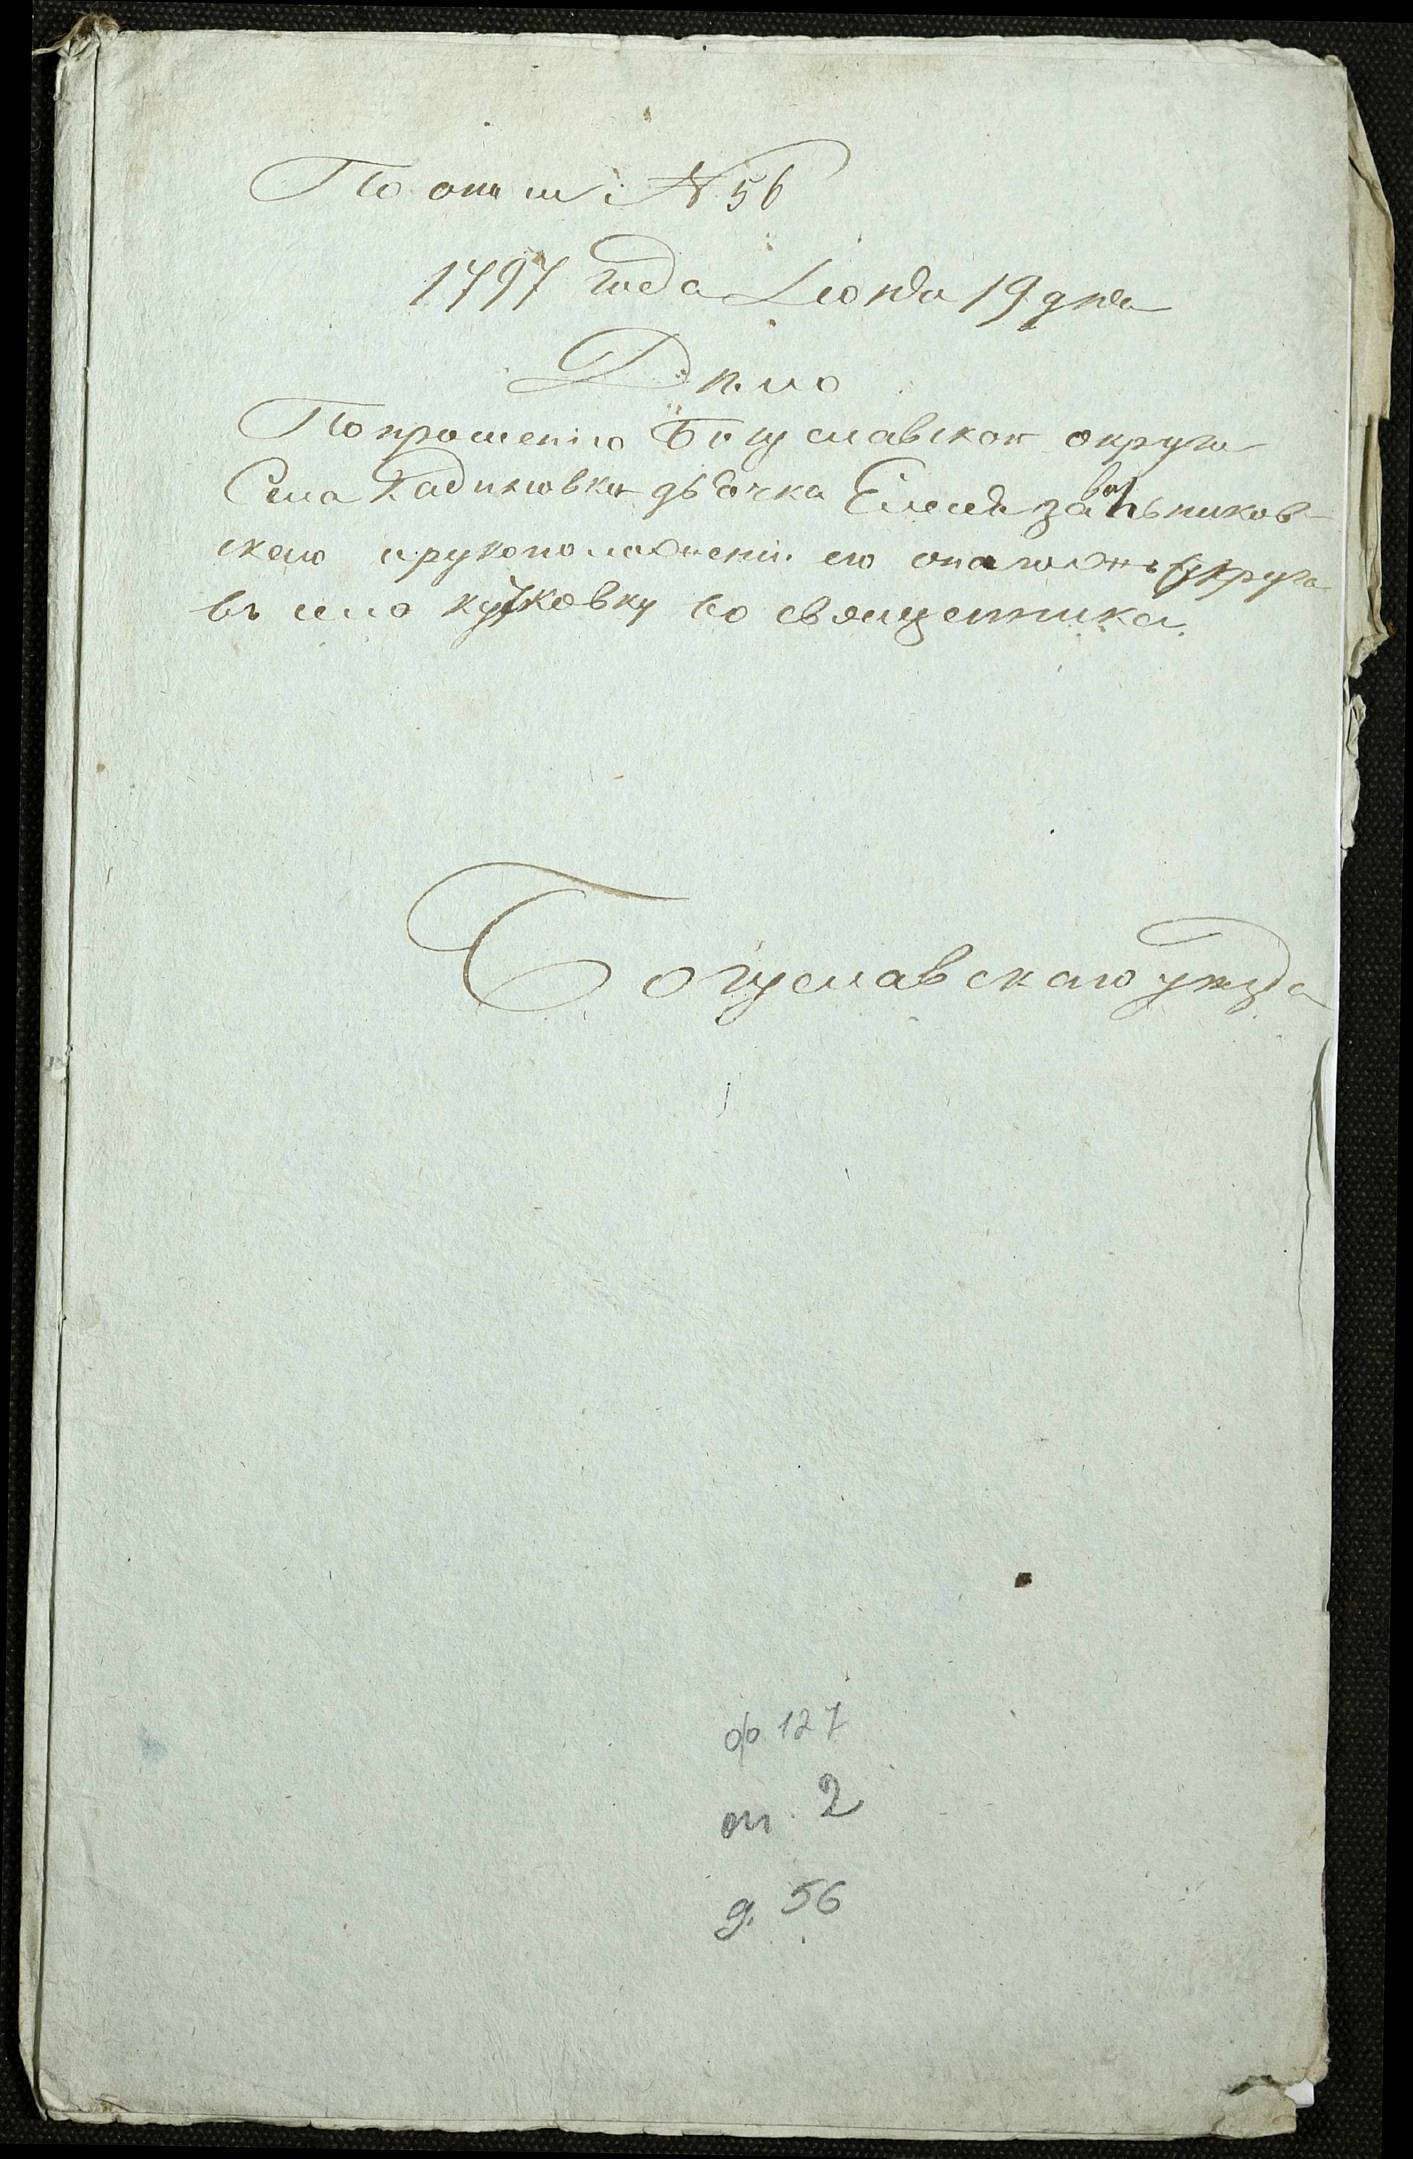 По описи № 56
1797 года Июня 19 дня
Дѣло
По прошению Богуславской округи
Села дьячка Елисея
скаго о рукоположении его оной же округи
въ село во священника.
Богуславскаго уѣзда
ф 127
оп. 2
д. 56